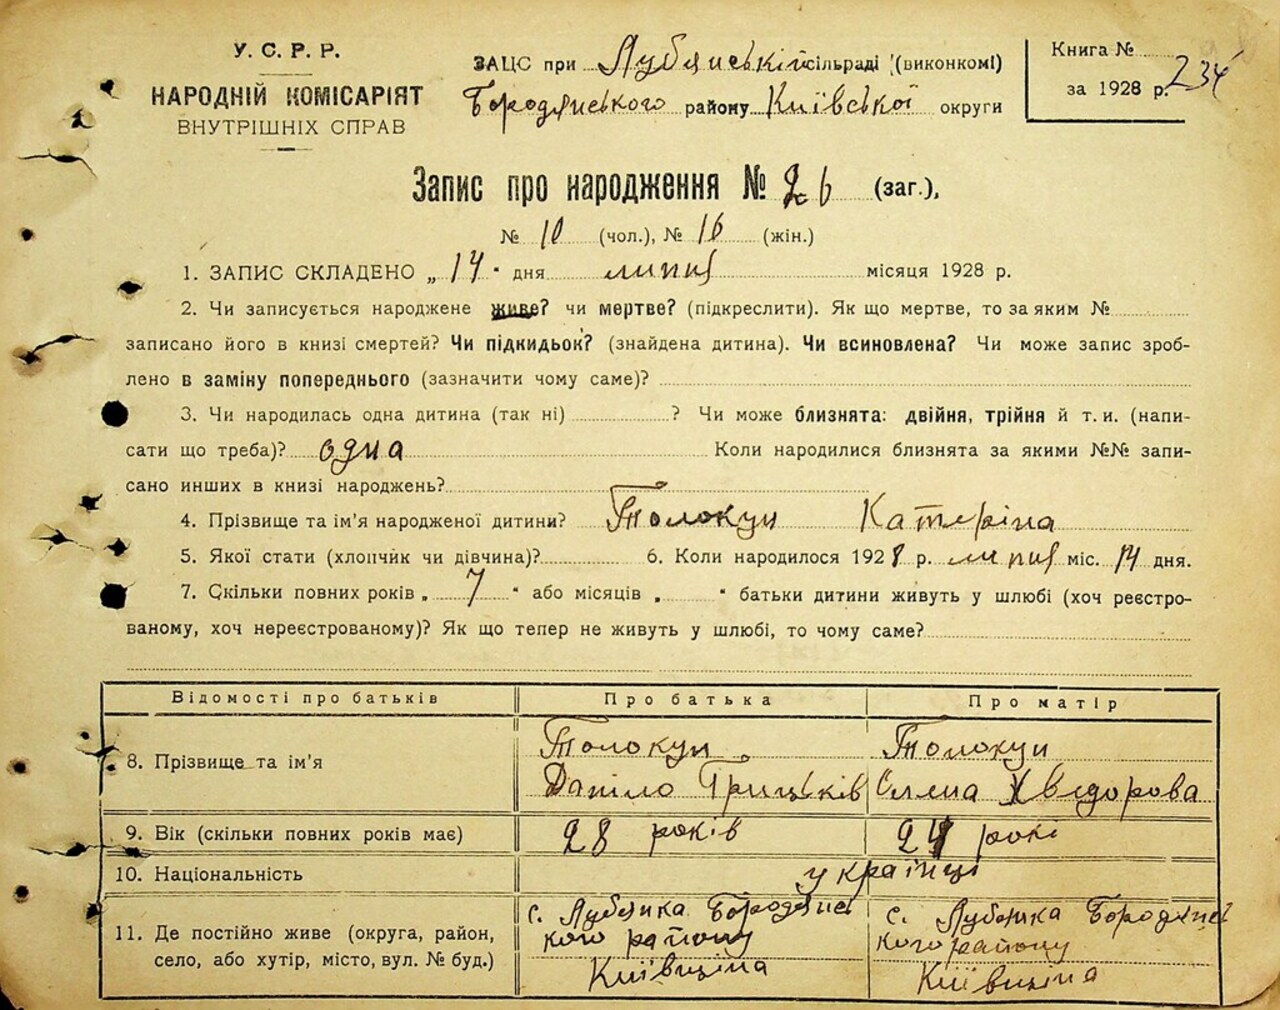 У. С. Р. Р.
НАРОДНІЙ КОМІСАРІЯТ
ВНУТРІШНІХ СПРАВ
ЗАЦС при Лубянській сільраді (виконкомі)
Бородянського району Київської округи
Книга №
за 1928 р. 234
Запис про народження № 26 (заг.),
№ 10 (чол.), № 16 (жін.)
1. ЗАПИС СКЛАДЕНО „14" дня липня місяця 1928 р.
2. Чи записується народжене живе? чи мертве? (підкреслити). Як що мертве, то за яким №
записано його в книзі смертей? Чи підкидьок? (знайдена дитина). Чи всиновлена? Чи може запис зроб-
лено в заміну попереднього (зазначити чому саме)?
3. Чи народилась одна дитина (так ні) ? Чи може близнята: двійня, трійня й т. и. (напи-
сати що треба)? одна Коли народилися близнята за якими №№ запи-
сано инших в книзі народжень?
4. Прізвище та ім'я народженої дитини? Толокун Катеріна
5. Якої стати (хлопчик чи дівчина)? 6. Коли народилося 1928 р. липня міс. 14 дня.
7. Скільки повних років „ 7 " або місяців „ " батьки дитини живуть у шлюбі (хоч реєстро-
ваному, хоч нереєстрованому)? Як що тепер не живуть у шлюбі, то чому саме?
Відомості про батьків Про батька Про матір
8. Прізвище та ім'я
Толокун
Даніло Грицьків
Толокун
Олена Хведорова
9. Вік (скільки повних років має) 28 років 24 рокі
10. Національність українці
11. Де постійно живе (округа, район,
село, або хутір, місто, вул. № буд.)
с. Лубянка Бородянс
кого району
Київщіна
с. Лубянка Бородянс
кого району
Київщіна